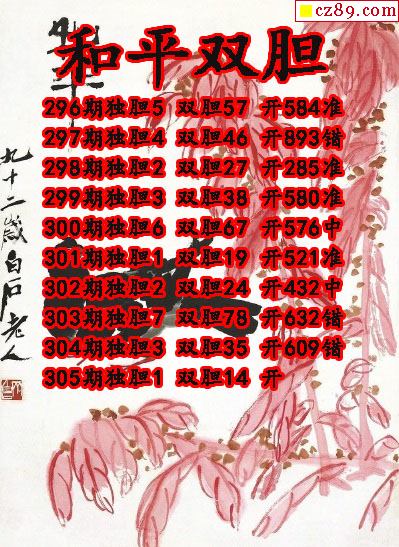 cz89.com
和平双胆
296期独胆5 双胆57 开584准
297期独胆4 双胆46 开893错
298期独胆2 双胆27 开285准
299期独胆3 双胆38 开580准
300期独胆6 双胆67 开576中
301期独胆1 双胆19 开521准
302期独胆2 双胆24 开432中
303期独胆7 双胆78 开632错
304期独胆3 双胆35 开609错
305期独胆1 双胆14 开
九十二岁白石老人